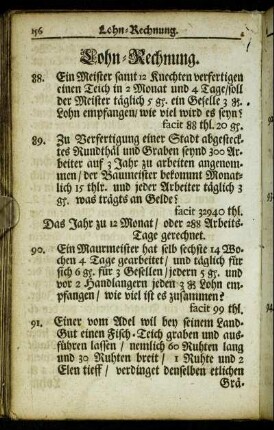 156 Lohn-Rechnung.
Lohn-Rechnung.
88. Ein Meister samt 12 Knechten verfertigen
einen Teich in 2 Monat und 4 Tage/soll
der Meister täglich 5 gs. ein Geselle 3 gs.
Lohn empfangen/ wie viel wird es seyn?
facit 88 thl. 20 gs.
89. Zu Verfertigung einer Stadt abgesteck-
tes Rundthäl und Graben seynd 300 Ar-
beiter auf 3 Jahr zu arbeiten angenom-
men/ der Baumeister bekommt Monat-
lich 15 thlr. und jeder Arbeiter täglich 3
gs. was trägts an Gelde?
facit 32940 thl.
Das Jahr zu 12 Monat/ oder 288 Arbeits-
Tage gerechnet.
90. Ein Maurmeister hat selb sechste 14 Wo-
chen 4 Tage gearbeitet/ und täglich für
sich 6 gs. für 3 Gesellen/ jedern 5 gs. und
vor 2 Handlangern jedem 3 gs Lohn em-
pfangen/ wie viel ist es zusammen?
facit 99 thl.
91. Einer vom Adel wil bey seinem Land-
Gut einen Fisch-Teich graben und aus-
führen lassen/ nemlich 60 Ruhten lang
und 30 Ruhten breit/ 1 Ruhte und 2
Elen tieff/ verdinget denselben etlichen
Grä-